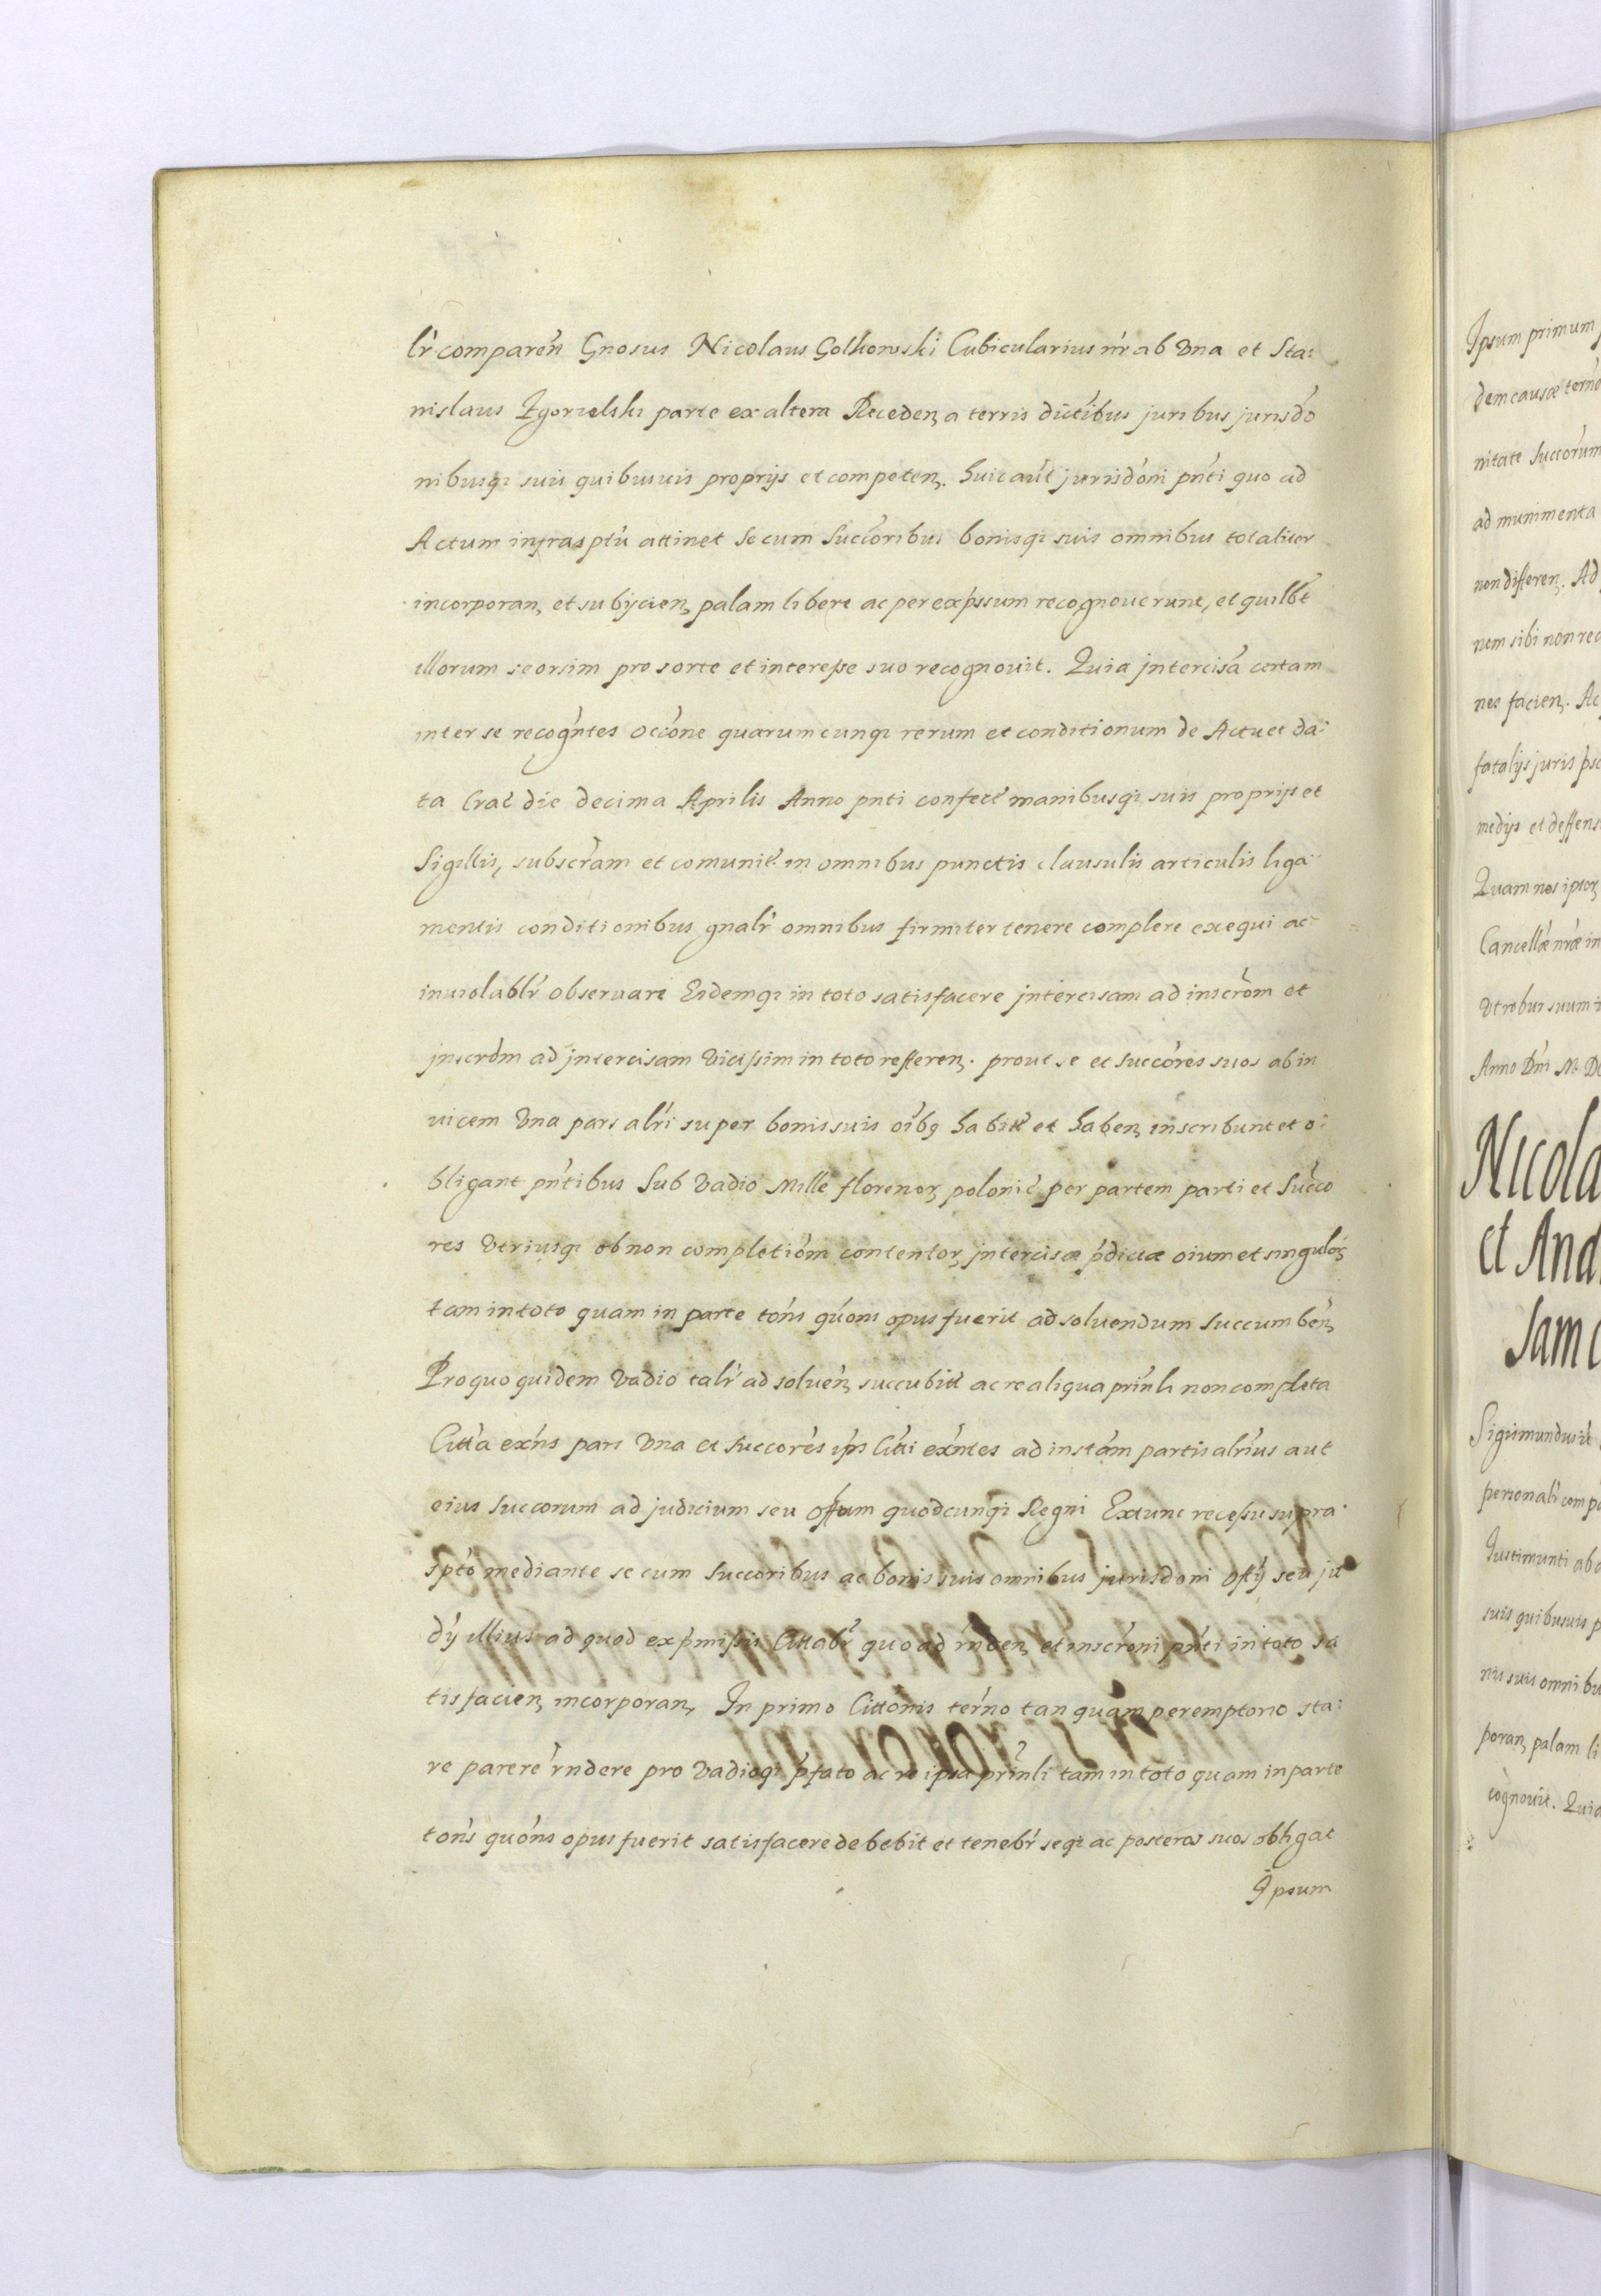 lr̃ comparen̄ Gnosus Nicolaus Golkowski Cubicularius nr̄ ab Vna et Sta:
nislaus Zgorzelski parte ex altera Receden, a terris districtibus juribus jurisdo
nibusq, suis quibusuis proprijs et competen, huic aūt jurisdōni pn̄ti quo ad
Actum infrasptū attinet se cum Succōribus bonisq, suis omnibus totaliter
incorporan, et subijcien, palam libere ac per exp̄ssum recognouerunt, et quilbt̄
illorum seorsim pro sorte et interesse suo recognouit. Quia jntercisā certam
inter se recogn̄tes occōne quarumcunq, rerum et conditionum de Actu et da:
ta Crac̄ die decima Aprilis Anno pnti confect̄ manibusq, suis proprijs et
Sigillis, subscr̄am et comunit̄ in omnibus punctis clausulis articulis liga:
mentis conditionibus gnalr̄ omnibus firmiter tenere complere exequi ac
inuiolablr̄ obseruare Eidemq, in toto satisfacere jntercisam ad inscrōm et
jnscrōm ad jntercisam Vicissim in toto referen, prout se et succōres suos ab in
uicem Vna pars alr̄i super bonis suis oīb9 habit̄ et haben, inscribunt et o:
bligant pn̄tibus Sub Vadio Mille florenor, polonic̄ per partem parti et Succo
res Vtriusq, ob non completiōm contentor, jntercisæ p̄dictæ oium et singulor,
tam in toto quam in parte tōns quōns opus fuerit ad soluendum succumben̄,
Pro quo quidem Vadio talr̄ ad soluen̄, succubit̄ ac re aliqua prin̄li non completa
Citt̄a exn̄s pars Vna et succorēs ip̄s Citt̄i exn̄tes ad instām partis alr̄ius aut
eius succorum ad judicium seu offum quodcunq, Regni Extunc recessu supra
sptō mediante se cum succoribus ac bonis suis omnibus jurisdoni offij seu ju
dy illius ad quod ex p̄missis Cittabr̄ quo ad r̄nden, et inscrōni pn̄ti in toto sa
tisfacien, incorporan, In primo Cittōnis ter̄no tanquam peremptorio sta:
re parere r̄ndere pro Vadioq, p̄fato ac re ipsa prin̄li tam in toto quam in parte
tōns quōns opus fuerit satisfacere debebit et tenebr̄ seq, ac posteros suos obligat
Ipsum
Ipsum primum
dem causæ ter̄no
nitate succorum
ad munimenta
non differen,. Ad
nem sibi non
nes facien,. Ac
fatalijs juris
medys et deffens
Quam nos
Cancellæ nr̄æ in
Vt robur suum
Anno Dn̄i M. D
Nicola
et And
Sigismundus
personalr̄
suis quibusuis p
nis suis omnibu
poran, palam li
cognouit. Quia